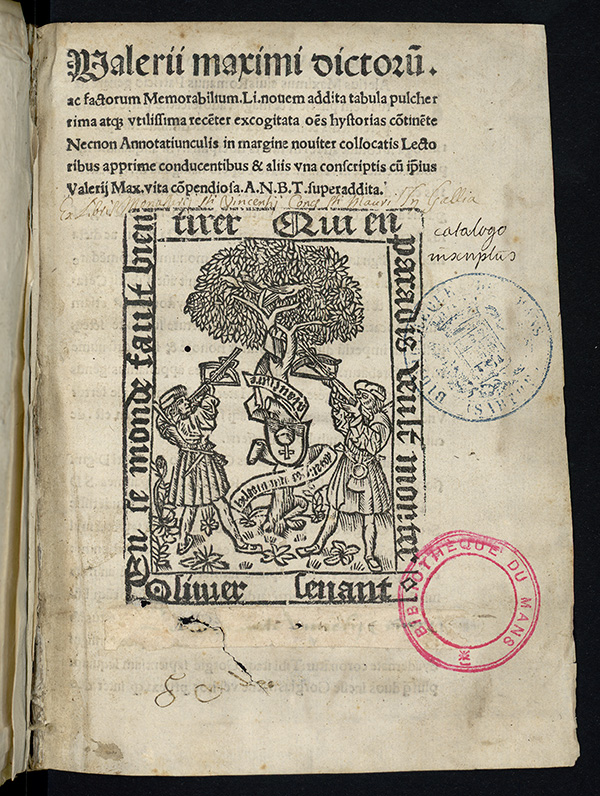 Valerii maximi dictorū.
ac factorum Memorabilium. Li. nouem addita tabula pulcher
rima atq; vtilissima recēter excogitata oēs hystorias cōtinēte
Necnon Annotatiunculis in margine nouiter collocatis Lecto
ribus apprime conducentibus & aliis vna conscriptis cū ip̄ius
Valerij Max. vita cōpendiosa. A.N.B.T. superaddita.
Ex Libris Monasterii Sti Vincentii Cong. Sti Mauri
catalogo
inscriptus
En ce monde fault bien
tirer Qui en
paradis veult monter
Oliuier Senant
BIBLIOTHÈQUE DU MANS
(SARTHE)
BIBLIOTHÈQUE DU MANS